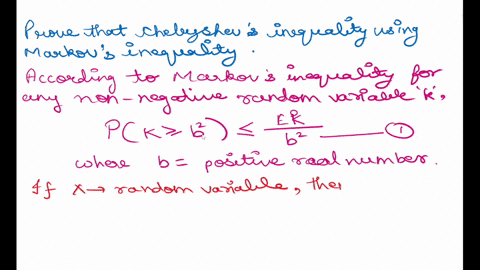 Prove that Chebyshev's inequality using
Markov's inequality.
According to Markov's inequality for
any non-negative random variable 'k',
P(K ≥ b²) ≤ EK / b² —— ①
where b = positive real number.
If X → random variable, the